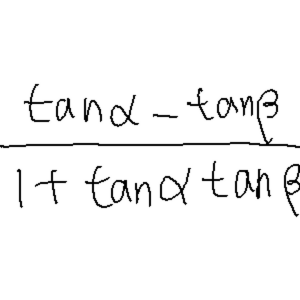 tanα - tanβ
1 + tanα tanβ